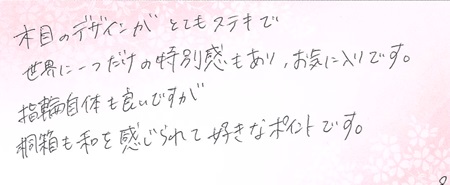 木目のデザインがとてもステキで
世界に一つだけの特別感もあり、お気に入りです。
指輪自体も良いですが
桐箱も和を感じられて好きなポイントです。